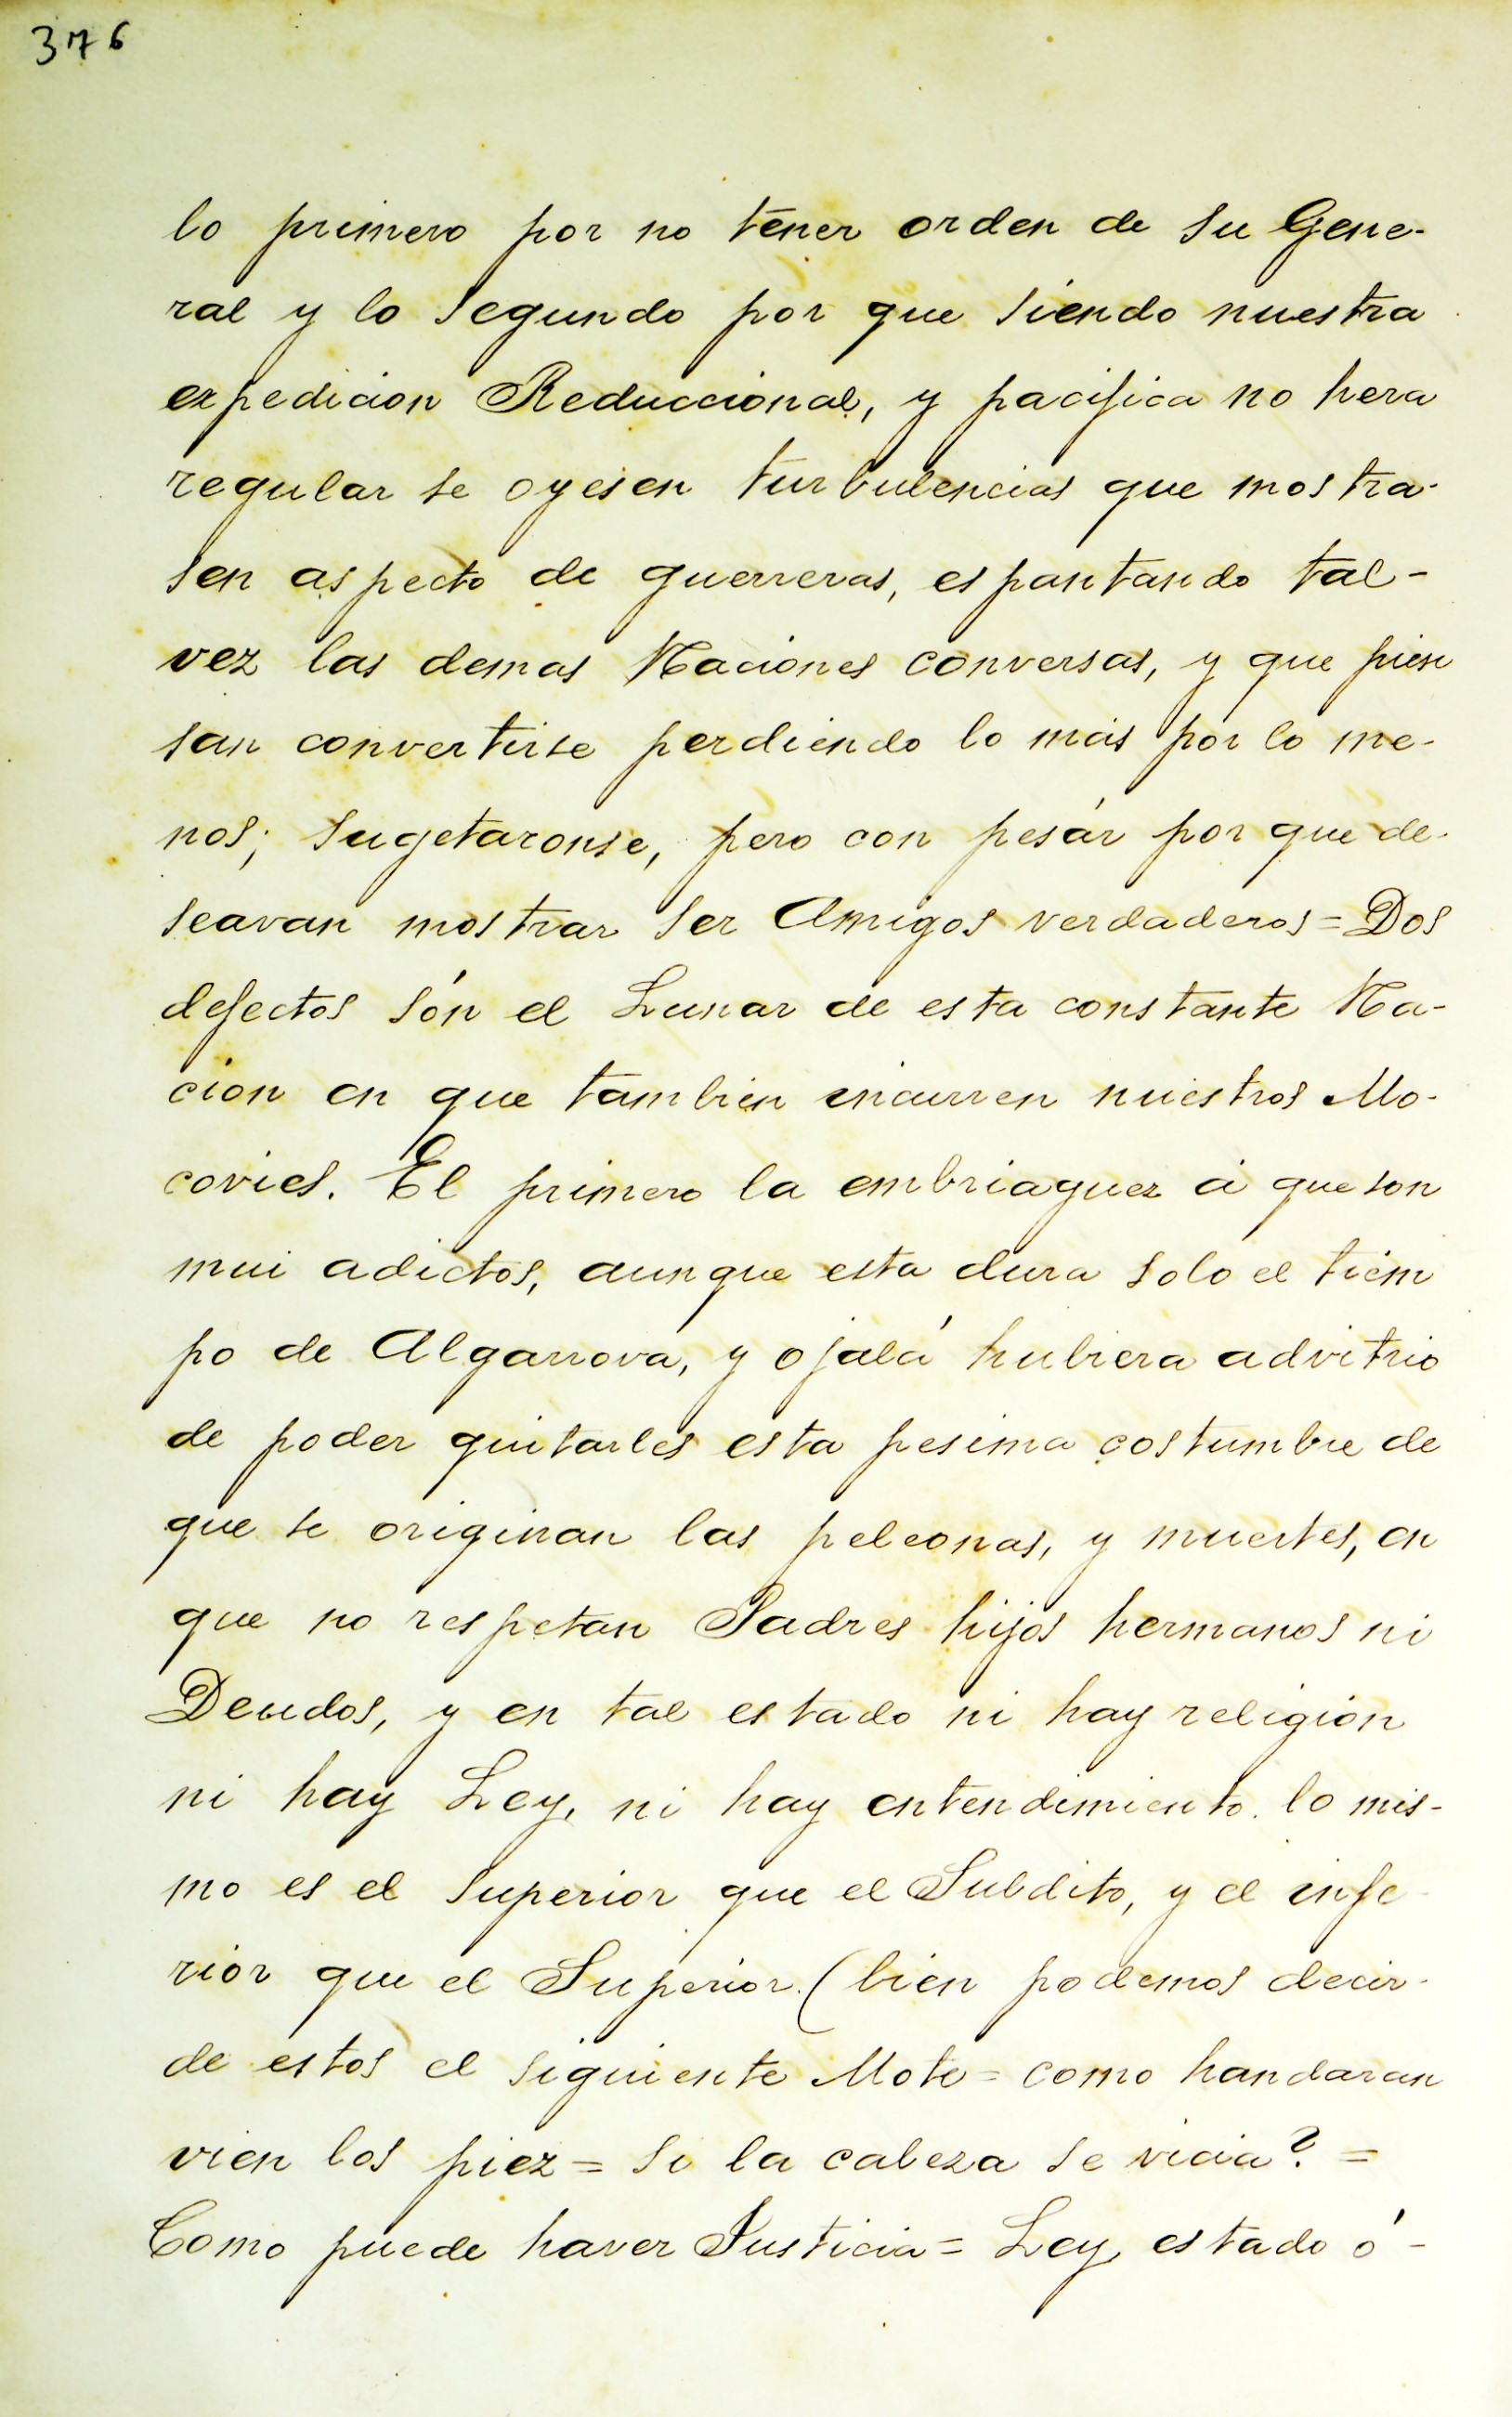 376
lo primero por no tener orden de su Gene-
ral y lo segundo por que siendo nuestra
expedicion Reduccional, y pacifica no hera
regular se oyesen turbulencias que mostra-
sen aspecto de guerreras, espantando tal-
vez las demas Naciones conversas, y que pien
san convertirse perdiendo lo mas por lo me-
nos; sugetaronse, pero con pesár por que de-
seavan mostrar ser Amigos verdaderos = Dos
defectos són el Lunar de esta constante Na-
cion en que tambien incurren nuestros Mo-
covies. El primero la embriaguez á que son
mui adictos, aunque esta dura solo el tiem
po de Algarrova, y ojalá hubiera advitrio
de poder quitarles esta pesima costumbre de
que se originan las peleonas, y muertes, en
que no respetan Padres hijos hermanos ni
Deudos, y en tal estado ni hay religion
ni hay Ley, ni hay entendimiento. lo mis-
mo es el superior que el Subdito, y el infe-
rior que el Superior. (bien podemos decir-
de estos el siguiente Mote = como handaran
vien los piez = si la cabeza se vicia? =
Como puede haver Justicia = Ley, estado ó -